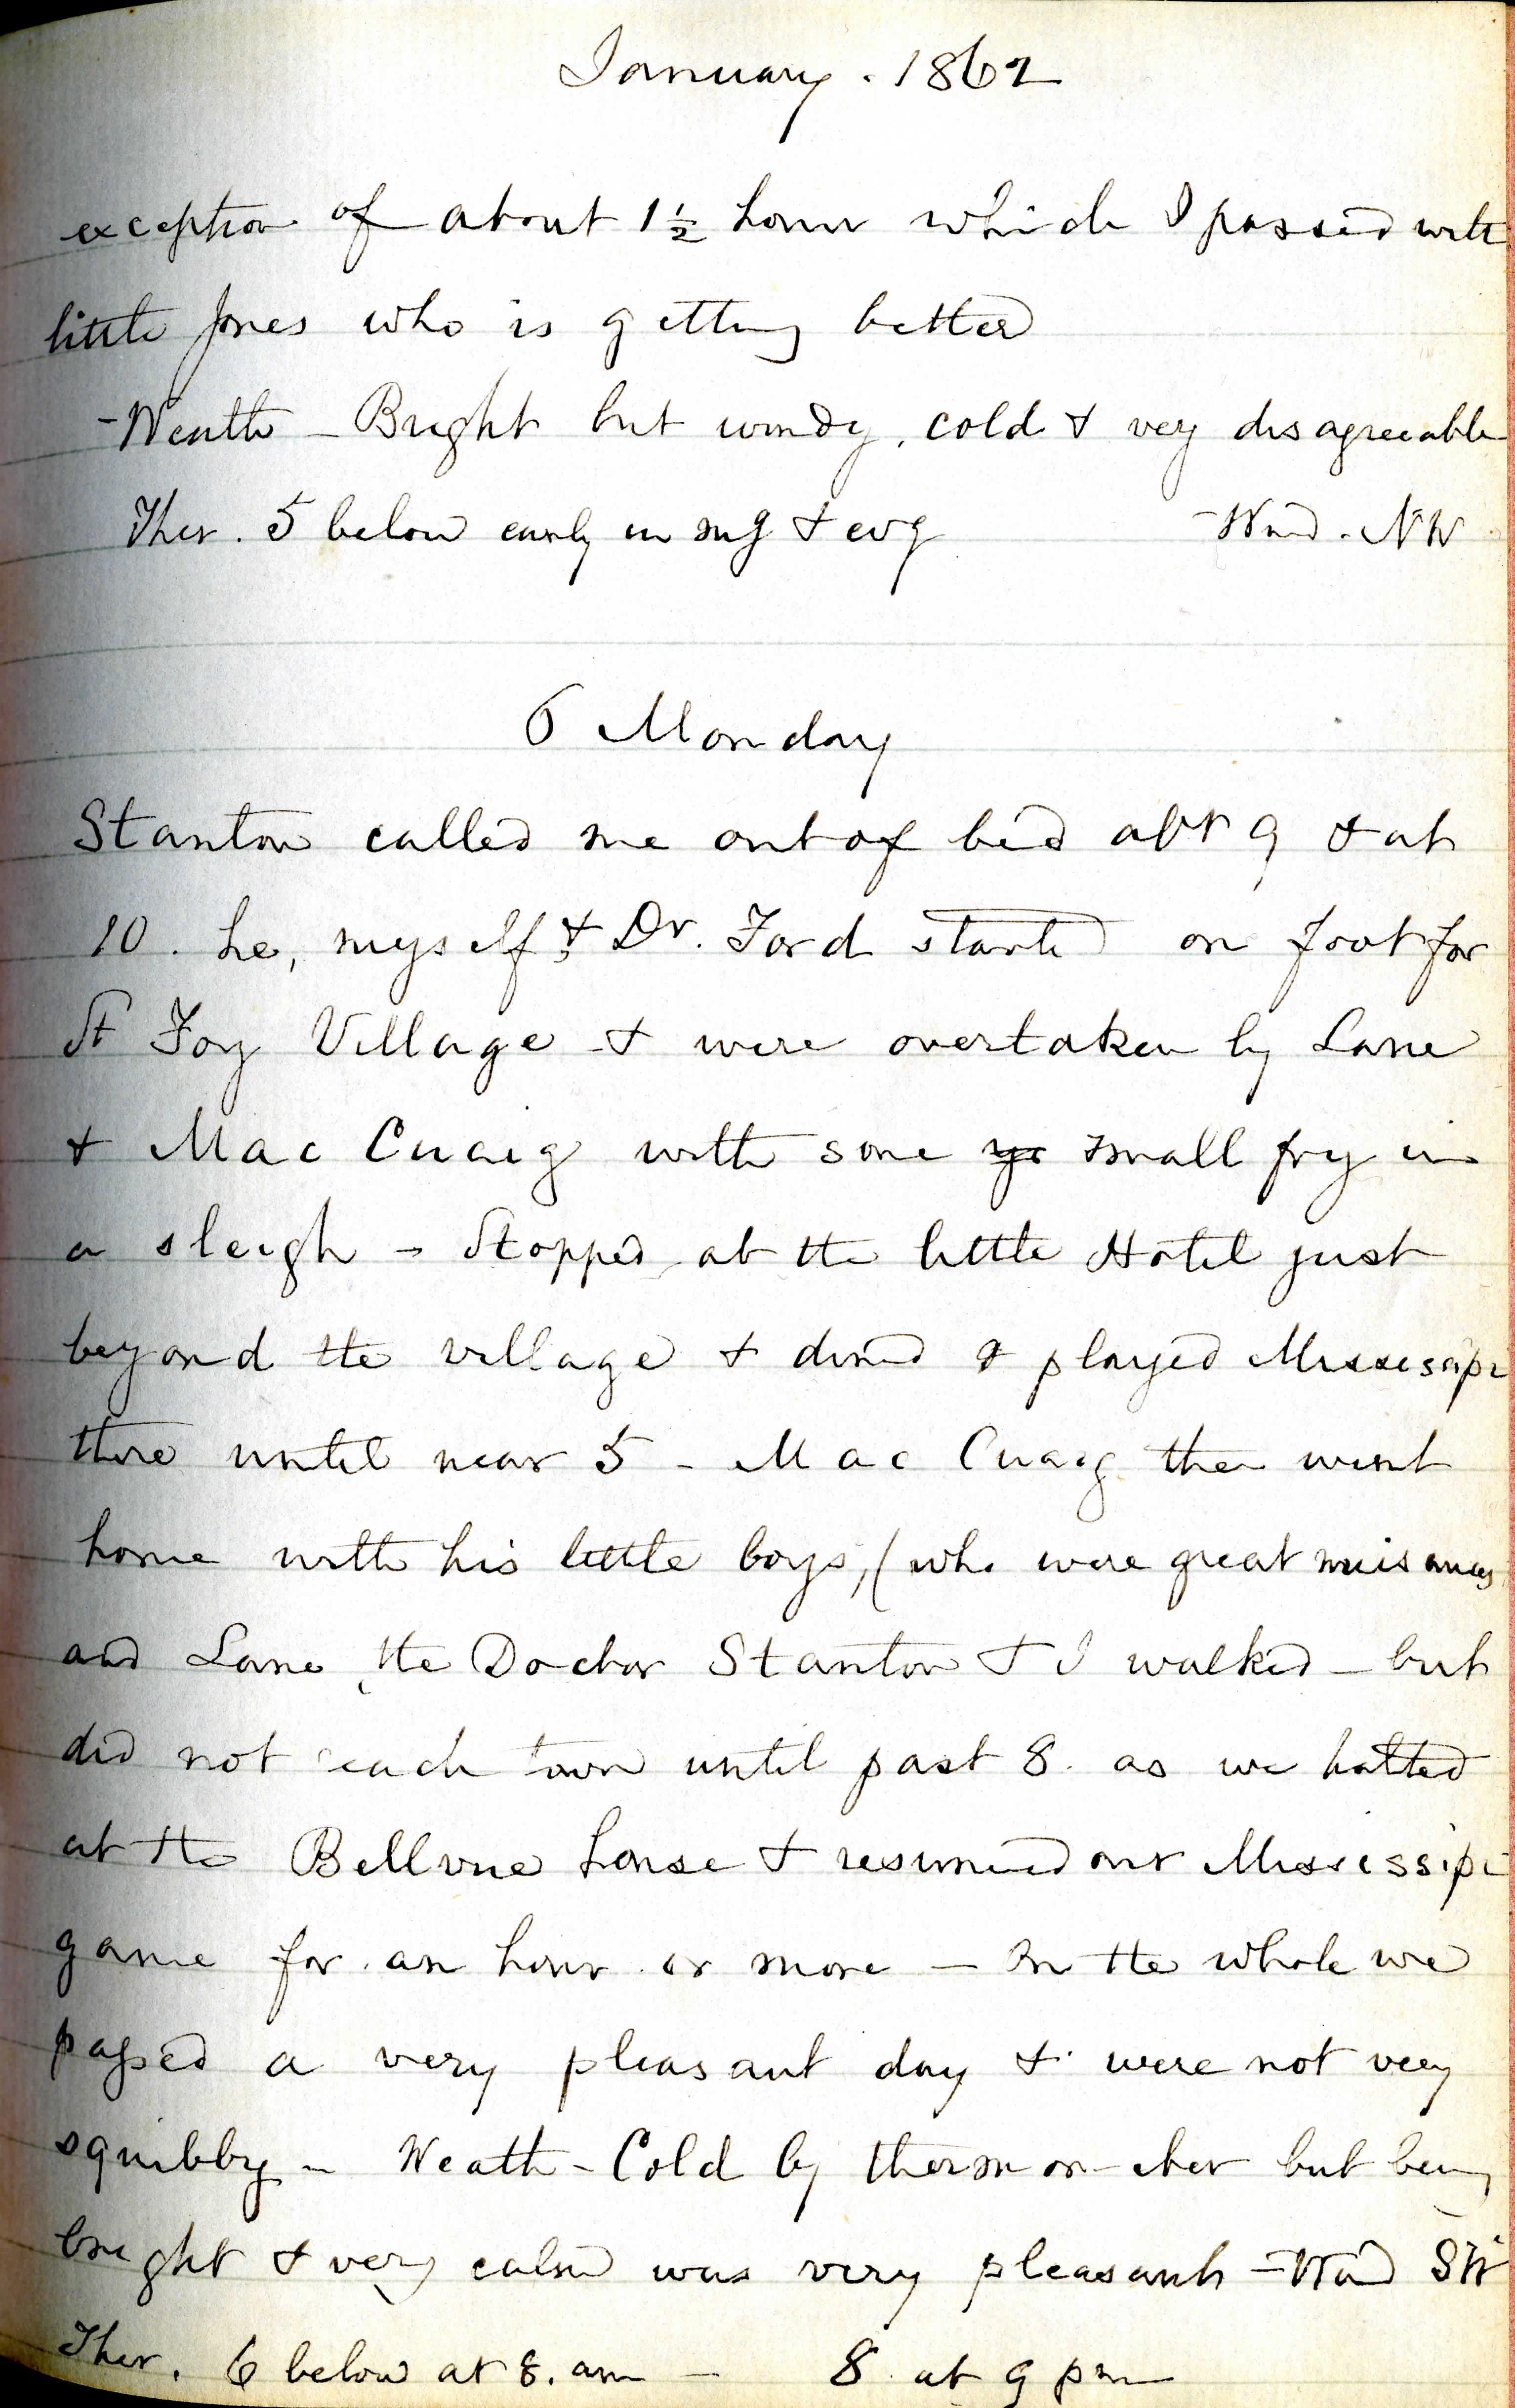 January . 1862
exception of about 1½ hour which I passed with
little Jones who is getting better
- Weath - Bright but windy, cold & very disagreeable
Ther. 5 below early in mg & evg - Wind. NW
6 Monday
Stanton called me out of bed abt 9 & at
10. he, myself & Dr. Ford started on foot for
St Foy Village & were overtaken by Lane
& Mac Cuaig with some small fry in
a sleigh - Stopped at the little Hotel just
beyond the village & dined & played Missisipi
there until near 5 - Mac Cuaig then went
home with his little boys, (who were great nuisances
and Lane, the Doctor Stanton & I walked - but
did not reach town until past 8. as we halted
at the Bellvue house & resumed our Mississipi
game for an hour or more - On the whole we
passed a very pleasant day & were not very
squibby - Weath - Cold by thermometer but being
bright & very calm was very pleasant - Wind SW
Ther. 6 below at 8. am - 8 at 9 pm